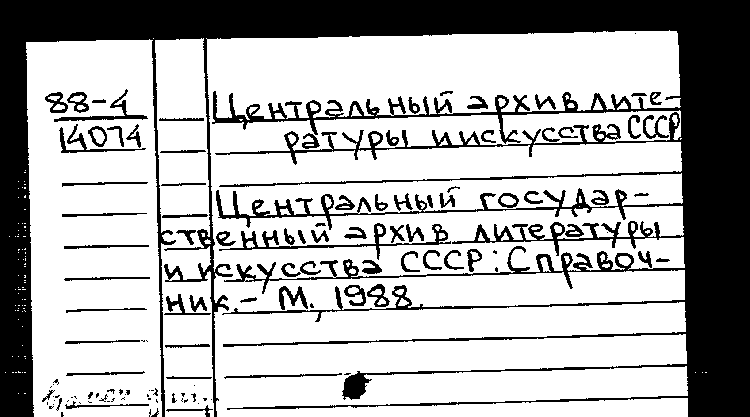 88-4
14074
Центральный архив лите-
ратуры и искусства СССР
Центральный государ-
ственный архив литературы
и искусства СССР: Справоч-
ник. - М., 1988.